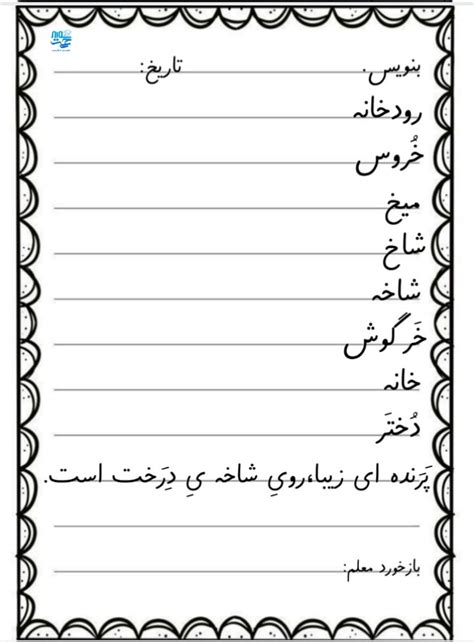 بنویس. تاریخ:
رودخانه
خُروس
میخ
شاخ
شاخه
خَرگوش
خانه
دُختَر
پَرَنده ای زیبا،رویِ شاخه یِ دِرَخت است.
بازخورد معلم: